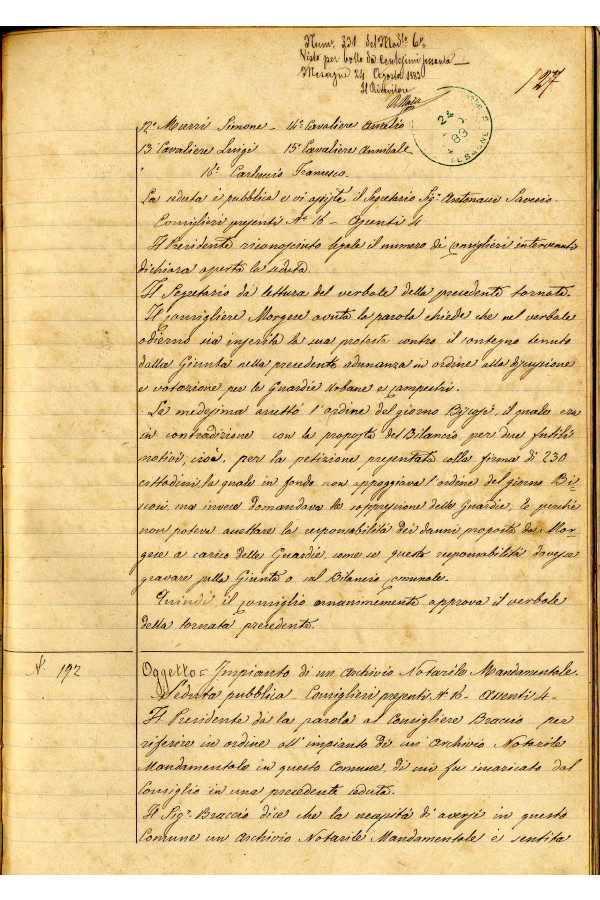 Num. 331 del Mod.lo 6°
Visto per bollo da Centesimi sessanta
Mesagne 24 Agosto 1883
Il Ricevitore
127
24
83
12° Murri Simone - 14° Cavaliere Aurelio
13 Cavaliere Luigi 15° Cavaliere Annibale
16° Carluccio Francesco.
La seduta è pubblica e vi assiste il Segretario Sig. Antonucci Saverio.
Consiglieri presenti N° 16 - Assenti 4
Il Presidente riconosciuto legale il numero di Consiglieri intervenuti
dichiara aperta la seduta.
Il Segretario dà lettura del verbale della precedente tornata.
Il Consigliere Morgese avuta la parola chiede che nel verbale
odierno sia inserita la sua protesta contro il contegno tenuto
dalla Giunta nella precedente adunanza in ordine alla discussione
e votazione per le Guardie Urbane e campestri.
La medesima accettò l'ordine del giorno, il quale era
in contradizione con le proposte del Bilancio, per due futili
motivi, cioè, per la petizione presentata colla firma di 230
cittadini, la quale in fondo non appoggiava l'ordine del giorno Bi-
scosi, ma invece domandava la soppressione delle Guardie, E perchè
non poteva accettare la responsabilità dei danni proposta da Mor-
gese a carico delle Guardie, come se questa responsabilità dovesse
gravare sulla Giunta o sul Bilancio Comunale.
Quindi il Consiglio unanimemente approva il verbale
della tornata precedente.
N. 192
Oggetto = Impianto di un Archivio Notarile Mandamentale.
Seduta pubblica - Consiglieri presenti N. 16 - Assenti 4 -
Il Presidente dà la parola al Consigliere Braccio per
riferire in ordine all'impianto di un Archivio Notarile
Mandamentale in questo Comune, di cui fu incaricato dal
Consiglio in una precedente seduta.
Il Sig. Braccio dice che la necessità di aversi in questo
Comune un Archivio Notarile Mandamentale è sentita